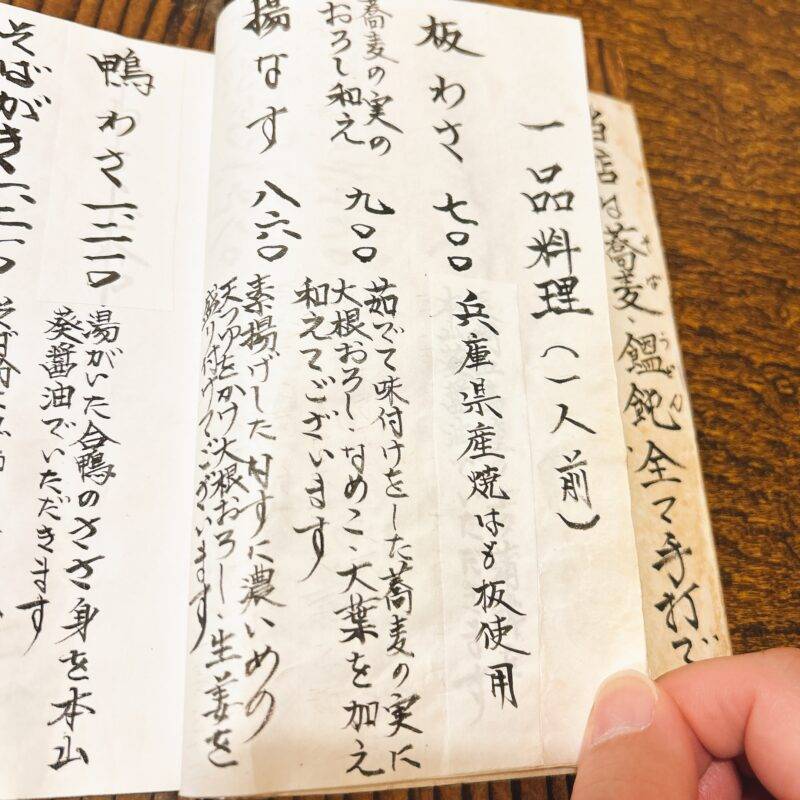 当店は蕎麦、饂飩全て手打で
そば
うどん
一品料理(一人前)
板わさ 七〇〇 兵庫県産焼はも板使用
蕎麦の実の
おろし和え 九〇〇
茹でて味付けをした蕎麦の実に
大根おろし、なめこ、大葉を加え
和えてございます
揚なす 八六〇
素揚げしたなすに濃いめの
天つゆをかけ大根おろし、生姜を
盛り付けてございます
鴨わさ 一、二一〇
湯がいた合鴨のささ身を本山
葵醤油でいただきます
そばがき 一、二一〇